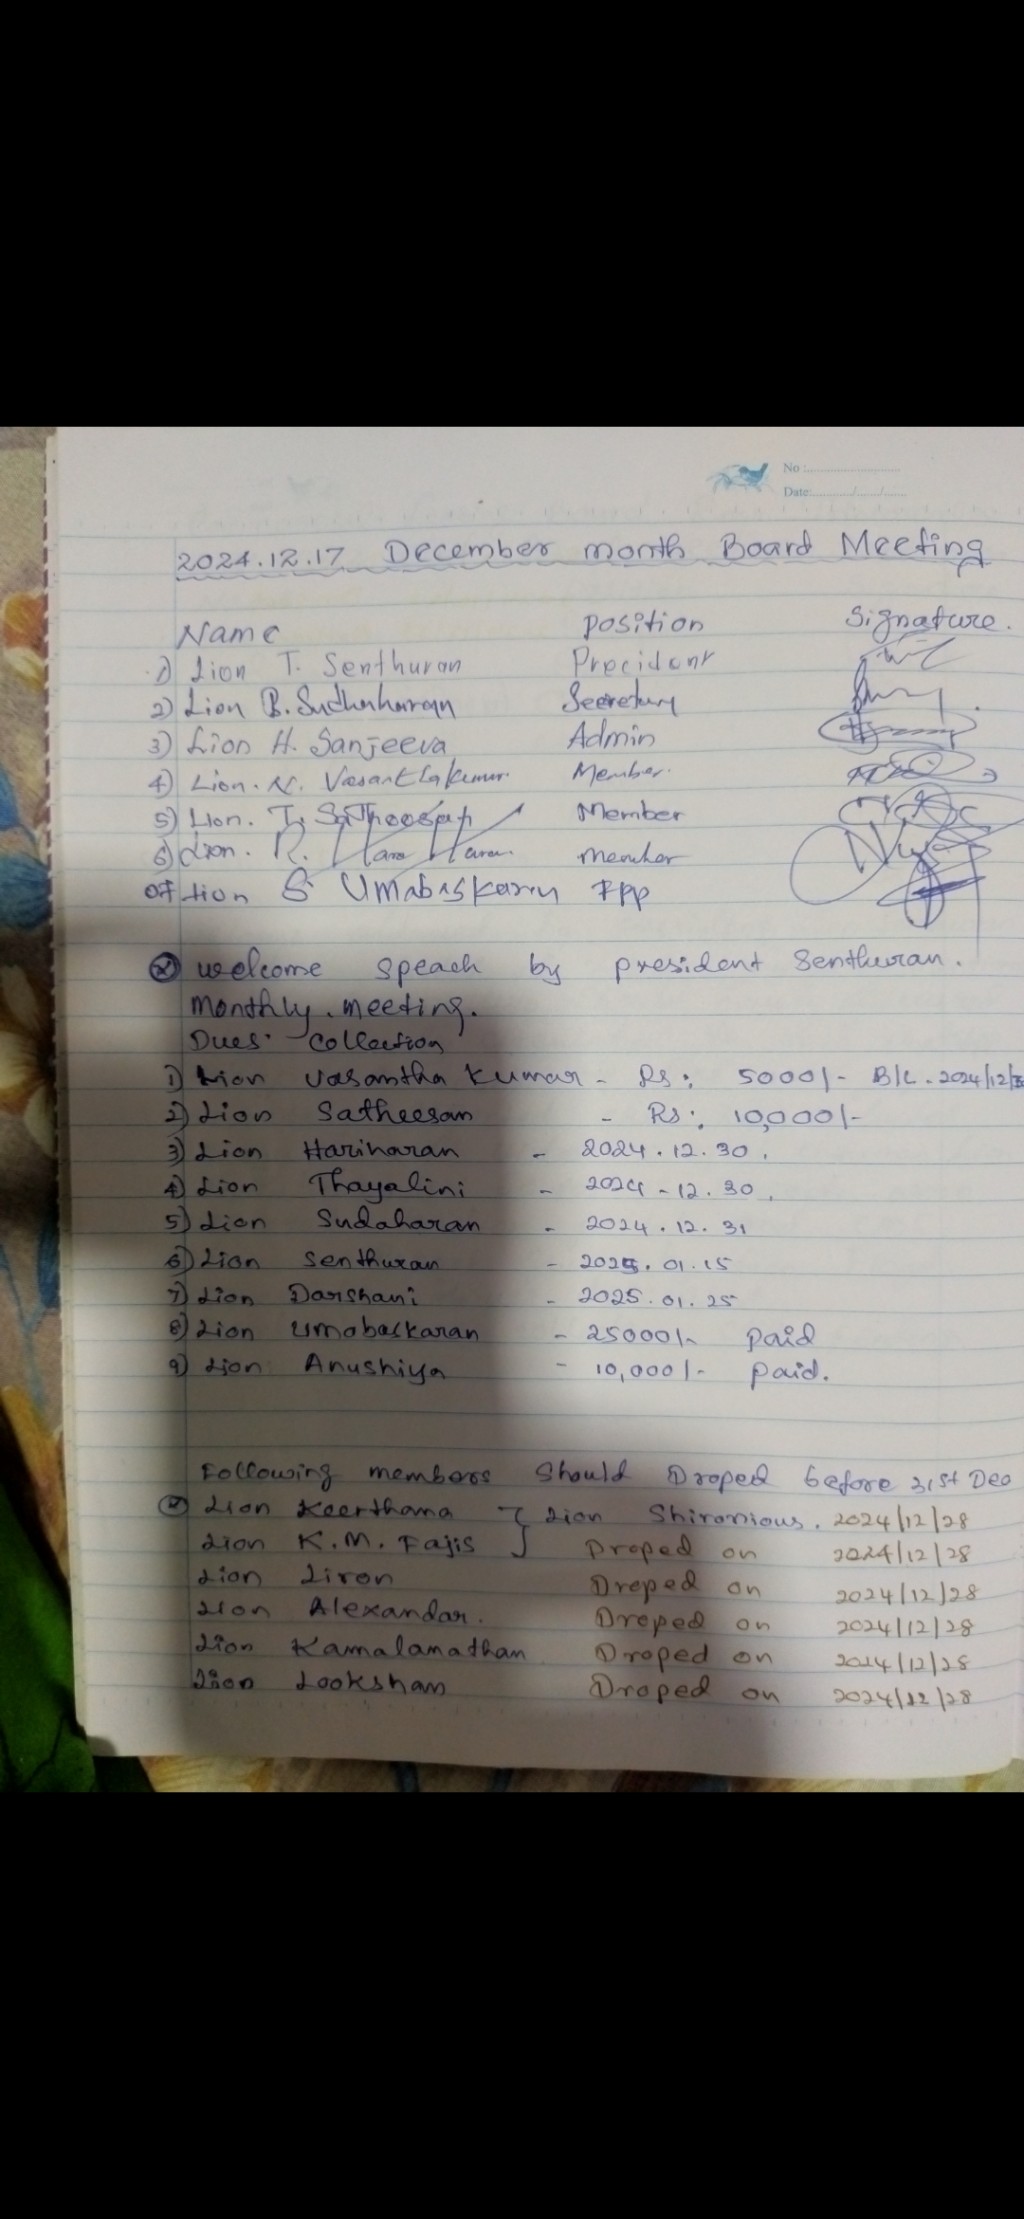 No :
Date:
2024.12.17 December month Board Meeting
Name position Signature.
1) Lion T. Senthuran Precident
2) Lion B. Sudhaharan Secretary
3) Lion H. Sanjeeva Admin
4) Lion. N. Vasanthakumar Member.
5) Lion. T. Member
6) Lion. R. Hara Haran. member
07 Lion S Umabaskaran IPP
welcome speach by president Senthuran.
monthly meeting.
Dues collection
1) Lion Vasantha Kumar - Rs: 5000/- B/L - 2024/12/
2) Lion Satheesan - Rs: 10,000/-
3) Lion Hariharan - 2024.12.30.
4) Lion Thayalini - 2024-12.30.
5) Lion Sudaharan - 2024.12.31
6) Lion Senthuran - 2025.01.15
7) Lion Darshani - 2025.01.25
8) Lion Umabaskaran - 25000/- paid
9) Lion Anushiya - 10,000/- paid.
Following members Should Droped before 31st Dec
Lion Keerthana } Lion Shironious. 2024/12/28
Lion K.M. Fajis Droped on 2024/12/28
Lion Liron Droped on 2024/12/28
Lion Alexandar. Droped on 2024/12/28
Lion Kamalanathan Droped on 2024/12/28
Lion Looksham Droped on 2024/12/28